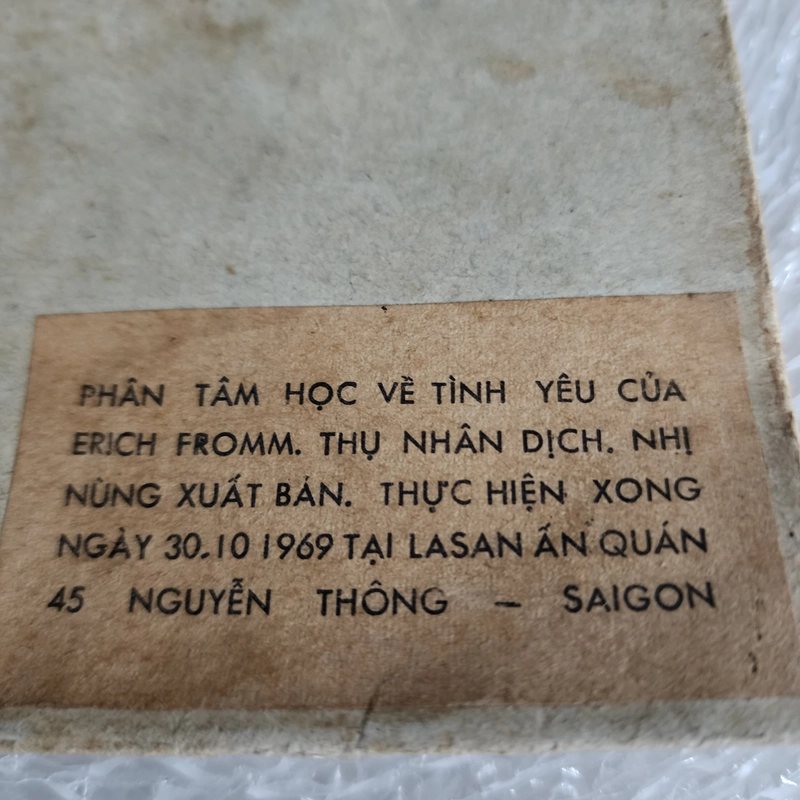 PHÂN TÂM HỌC VỀ TÌNH YÊU CỦA
ERICH FROMM. THỤ NHÂN DỊCH. NHỊ
NÙNG XUẤT BẢN. THỰC HIỆN XONG
NGÀY 30.10 1969 TẠI LASAN ẤN QUÁN
45 NGUYỄN THÔNG – SAIGON